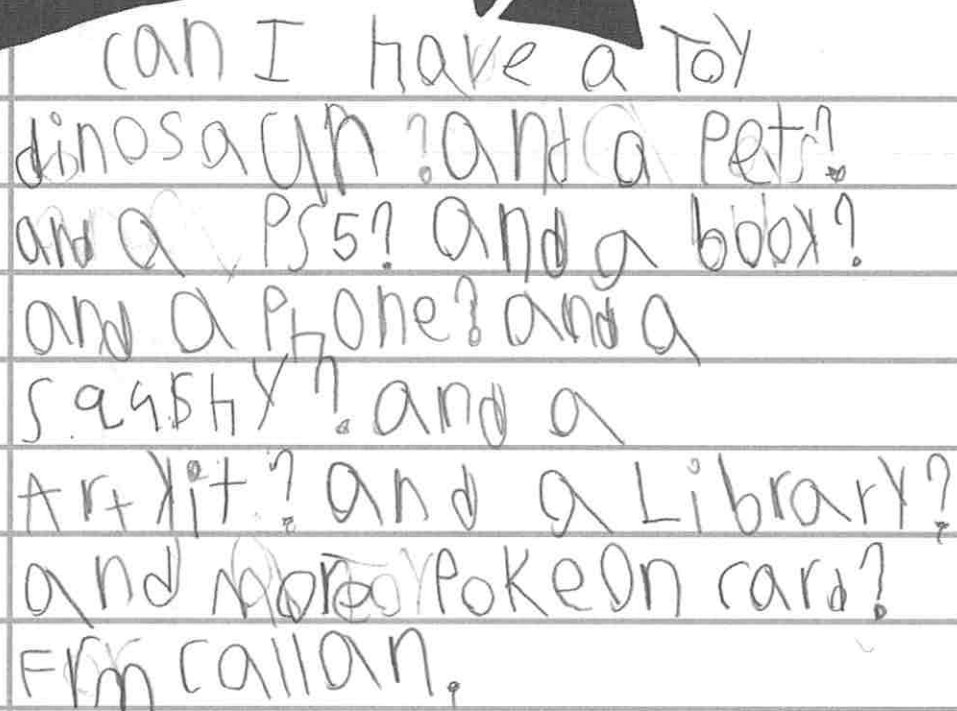 can I have a Toy
dinosaur ? and a Pet?
and a PS5? and a book?
and a Phone? and a
sqashy? and a
Art kit? and a Library?
and more PokeOn card?
Frm callan.